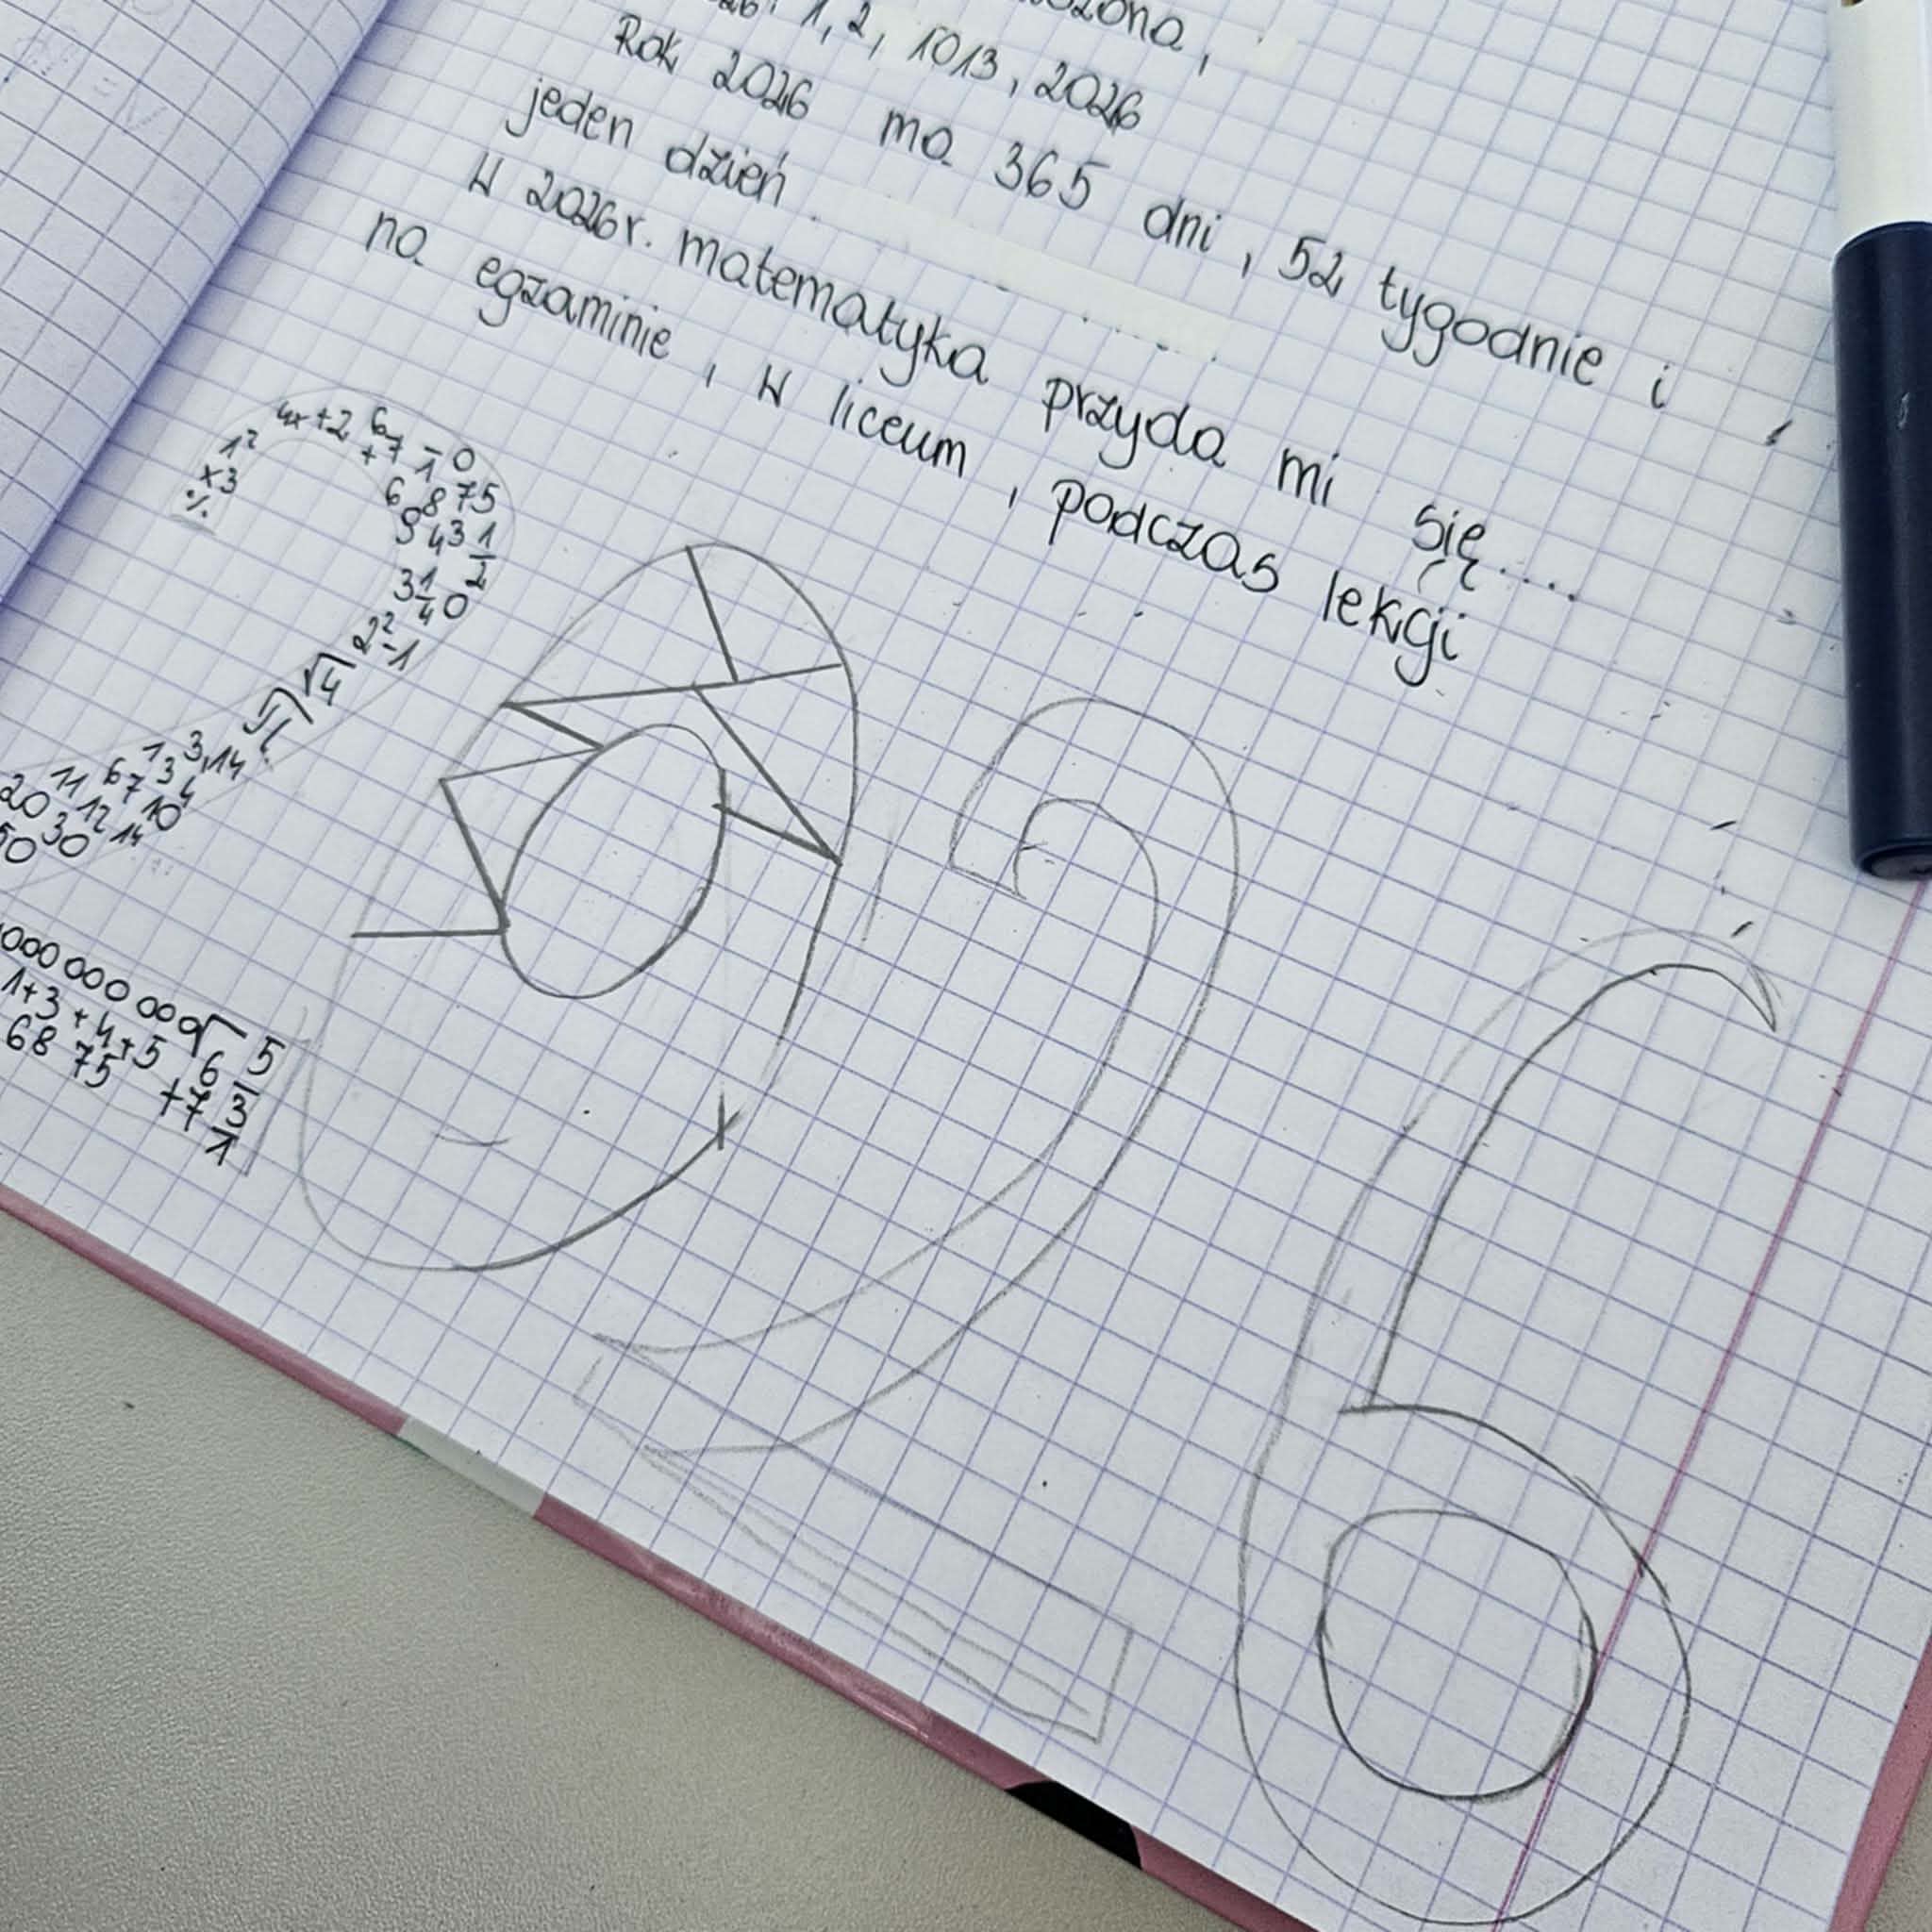 1, 2, 1013, 2026
Rok 2026 ma 365 dni, 52 tygodnie i
jeden dzień.
W 2026r. matematyka przyda mi się....
na egzaminie, w liceum, podczas lekcji
4x+2 67 - 0
1² + 1
x3 6 8 75
% 9 4 3 1/2
3 1/4 0
2²-1
3,14
1 3 4
11 6 7 10
20 30 11 12 14
50
000 000 000 5
1+3+4+5 6 3
68 75 +7 1
2026